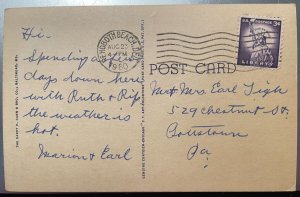 Hi-
Spending a few
days down here
with Ruth & Rip
the weather is
hot.
Marion & Earl
REHOBOTH BEACH, DEL.
AUG 23
4 PM
1960
U.S. POSTAGE 3¢
LIBERTY
POST CARD
Mr & Mrs Earl
529 Chestnut St
Pottstown
Pa